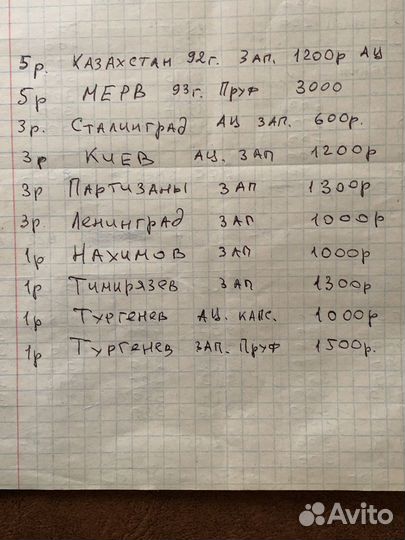 5р. Казахстан 92г. зап. 1200р АЦ
5р МЕРВ 93г. Пруф 3000
3р. Сталинград АЦ зап. 600р.
3р Киев АЦ. зап 1200р
3р Партизаны зап 1300р
3р. Ленинград зап 1000р
1р Нахимов зап 1000р
1р Тимирязев зап 1300р
1р Тургенев АЦ. капс. 1000р
1р Тургенев зап. Пруф 1500р.
Avito